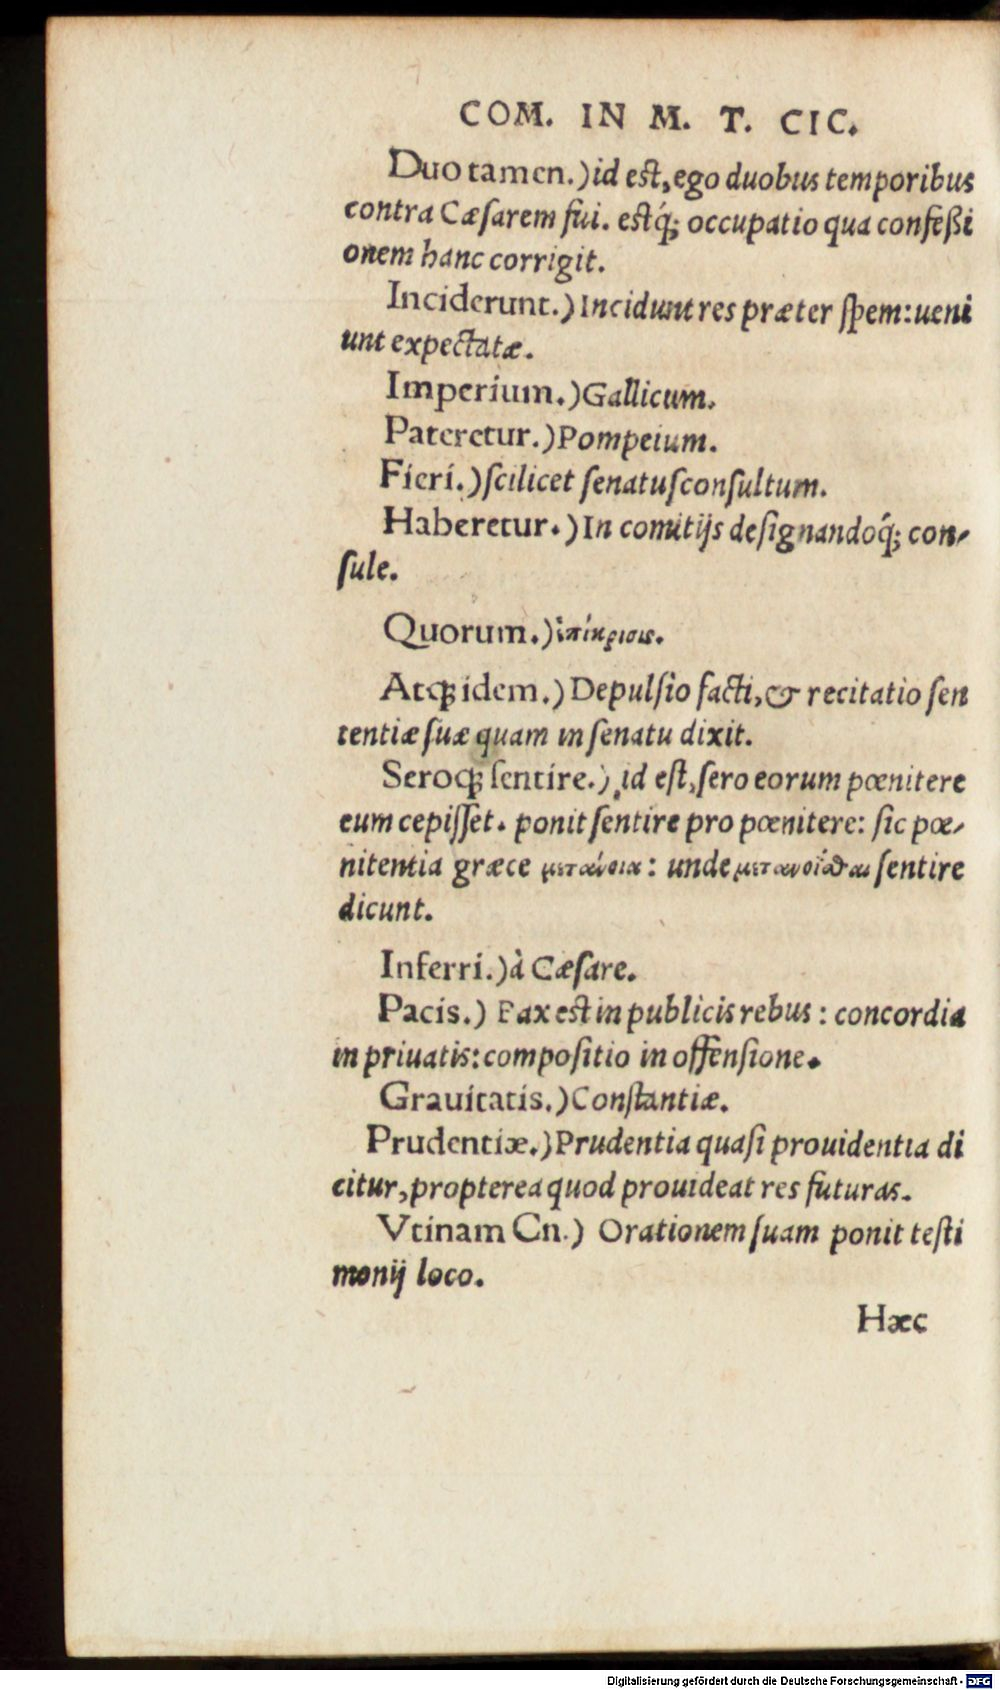 COM. IN M. T. CIC.
Duo tamen.) id est, ego duobus temporibus
contra Cæſarem fui. estq́; occupatio qua confeßi
onem hanc corrigit.
Inciderunt.) Incidunt res præter ſpem: ueni
unt expectatæ.
Imperium.) Gallicum.
Pateretur.) Pompeium.
Fieri.) ſcilicet ſenatuſconſultum.
Haberetur.) In comitijs deſignandoq́; con-
ſule.
Quorum.)
Atq; idem.) Depulſio facti, & recitatio ſen
tentiæ ſuæ quam in ſenatu dixit.
Seroq; ſentire.) id eſt, ſero eorum pœnitere
eum cepiſſet. ponit ſentire pro pœnitere: ſic pœ-
nitentia græce μετάνοια: unde μετανοεῖσθαι ſentire
dicunt.
Inferri.) à Cæſare.
Pacis.) Pax est in publicis rebus: concordia
in priuatis: compoſitio in offenſione.
Grauitatis.) Conſtantiæ.
Prudentiæ.) Prudentia quaſi prouidentia di
citur, propterea quod prouideat res futuras.
Vtinam Cn.) Orationem ſuam ponit teſti
monij loco.
Hæc
Digitalisierung gefördert durch die Deutsche Forschungsgemeinschaft - DFG